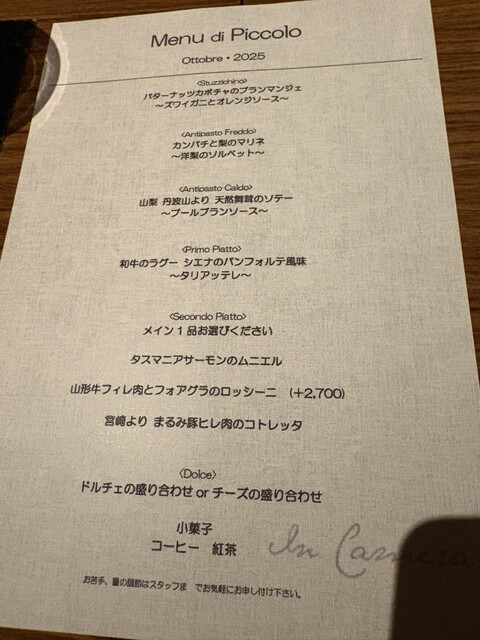 Menu di Piccolo
Ottobre・2025
<Stuzzichino>
バターナッツカボチャのブランマンジェ
～ズワイガニとオレンジソース～
<Antipasto Freddo>
カンパチと梨のマリネ
～洋梨のソルベット～
<Antipasto Caldo>
山梨 丹波山より 天然舞茸のソテー
～ブールブランソース～
<Primo Piatto>
和牛のラグー シエナのパンフォルテ風味
～タリアッテレ～
<Secondo Piatto>
メイン1品お選びください
タスマニアサーモンのムニエル
山形牛フィレ肉とフォアグラのロッシーニ (+2,700)
宮崎より まるみ豚ヒレ肉のコトレッタ
<Dolce>
ドルチェの盛り合わせ or チーズの盛り合わせ
小菓子
コーヒー 紅茶
In Camera
お苦手、量の調節はスタッフま でお気軽にお申し付け下さい。